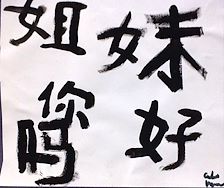 姐妹
你好吗